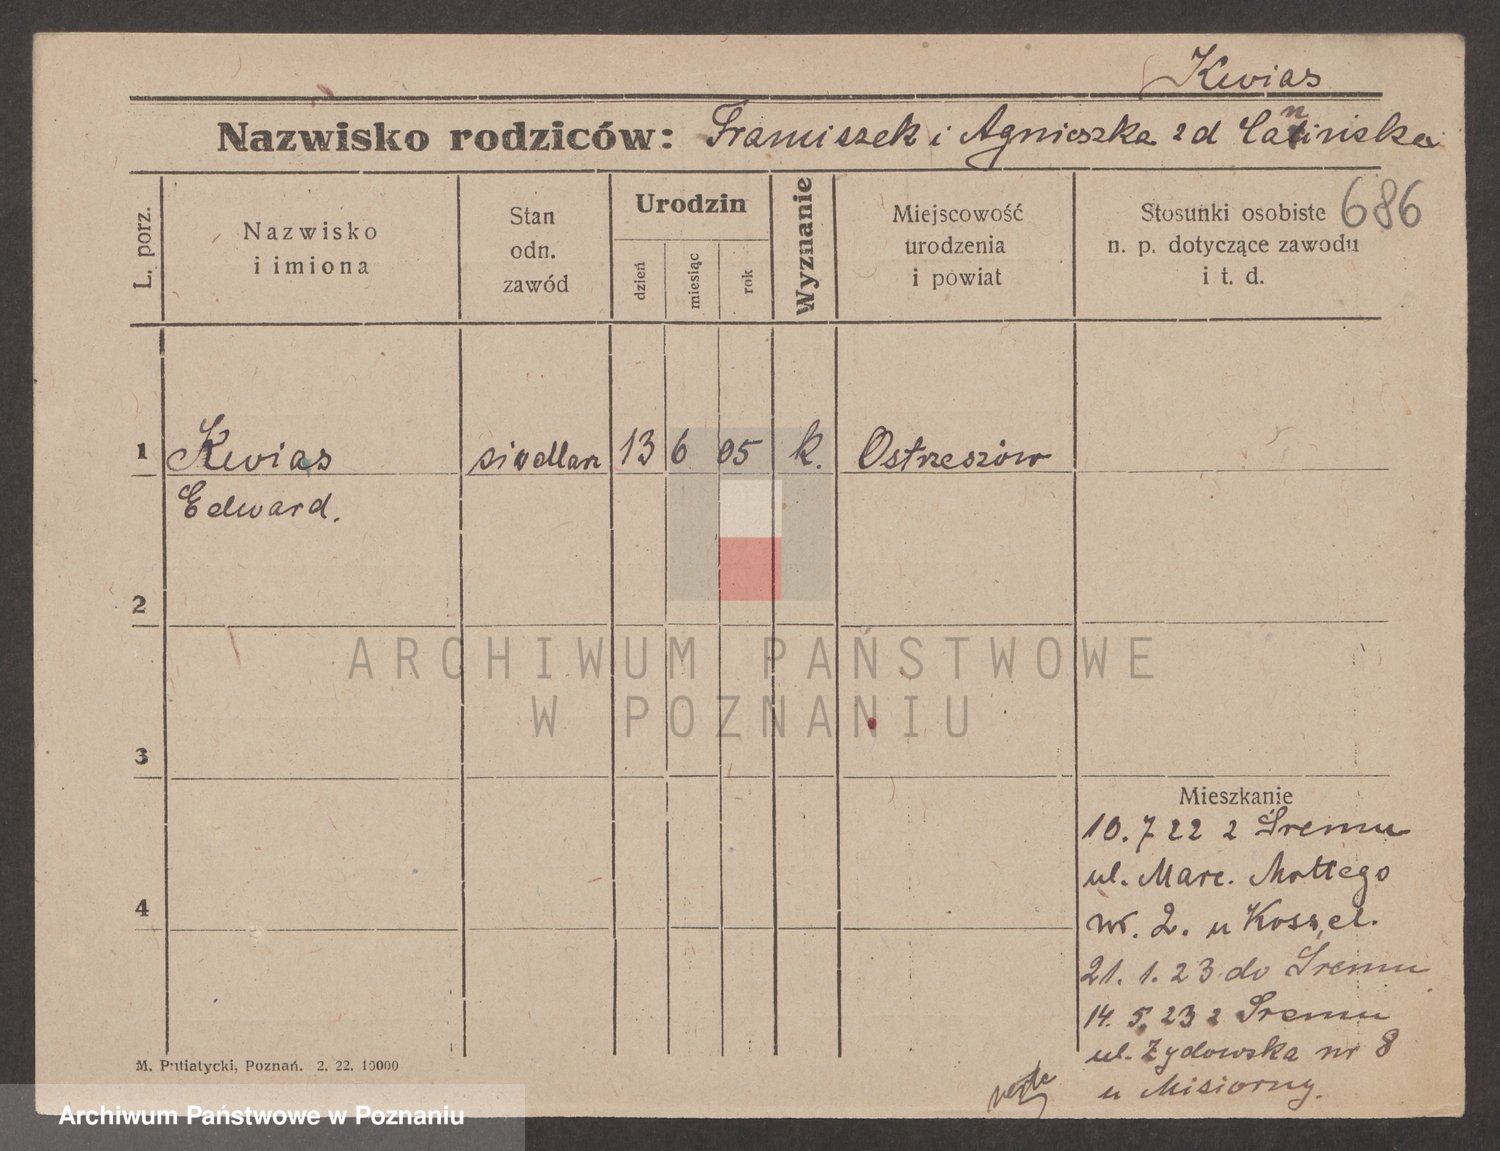 Kwias
Nazwisko rodziców: Franciszek i Agnieszka zd Łanińska
L. porz.
Nazwisko
i imiona
Stan
odn.
zawód
Urodzin
dzień
miesiąc
rok
Wyznanie
Miejscowość
urodzenia
i powiat
Stosunki osobiste
n. p. dotyczące zawodu
i t. d.
686
1 Kwias siodlarz 13 6 05 k. Ostrzeszów
Edward.
2
3
4
Mieszkanie
10. 7 22 z Śremu
ul. Marc. Mottego
nr. 2. u
21. 1. 23 do Śremu
14. 5. 23 z Śremu
ul. Żydowska nr 8
u Misiorny.
verte
M. Putiatycki, Poznań. 2. 22. 10000
ARCHIWUM PAŃSTWOWE
W POZNANIU
Archiwum Państwowe w Poznaniu